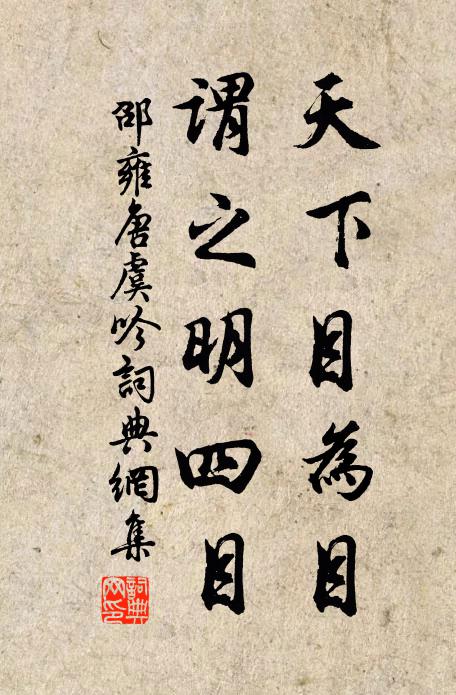 天下目為目
謂之明四目
邵雍唐虞吟詞典網集
詞典網印